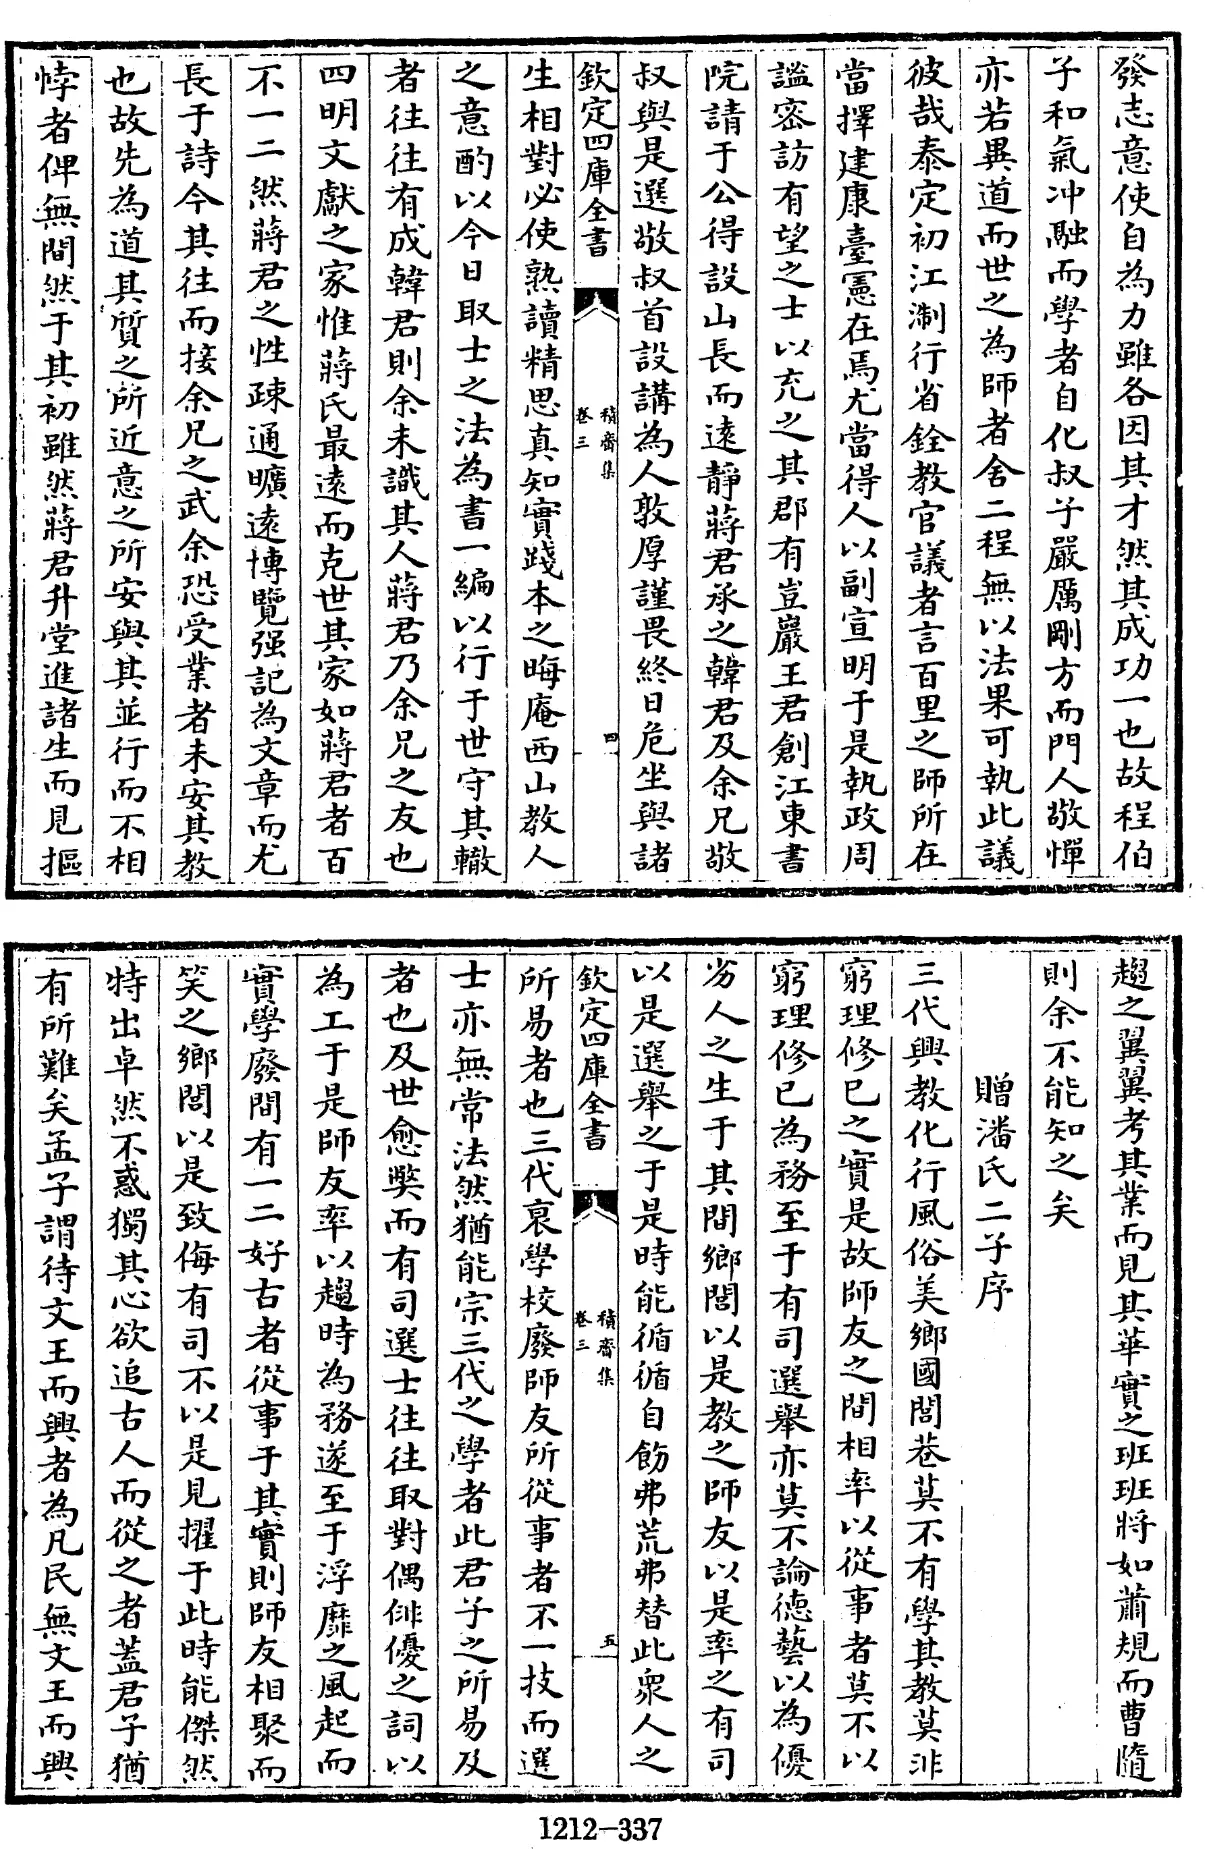 發志意使自為力雖各因其才然其成功一也故程伯
子和氣冲融而學者自化叔子嚴厲剛方而門人敬憚
亦若異道而世之為師者舍二程無以法果可執此議
彼哉泰定初江浙行省銓教官議者言百里之師所在
當擇建康臺憲在焉尤當得人以副宣明于是執政周
諡密訪有望之士以充之其郡有豈巖王君創江東書
院請于公得設山長而遠靜蔣君承之韓君及余兄敬
叔與是選敬叔首設講為人敦厚謹畏終日危坐與諸
欽定四庫全書
積齋集
卷三
四
生相對必使熟讀精思真知實踐本之晦庵西山教人
之意酌以今日取士之法為書一編以行于世守其轍
者往往有成韓君則余未識其人蔣君乃余兄之友也
四明文獻之家惟蔣氏最遠而克世其家如蔣君者百
不一二然蔣君之性疎通曠遠博覽强記為文章而尤
長于詩今其往而接余兄之武余恐受業者未安其教
也故先為道其質之所近意之所安與其並行而不相
悖者俾無間然于其初雖然蔣君升堂進諸生而見摳
趨之翼翼考其業而見其華實之班班將如蕭規而曹隨
則余不能知之矣
贈潘氏二子序
三代興教化行風俗美鄉國閭巷莫不有學其教莫非
窮理修已之實是故師友之間相率以從事者莫不以
窮理修已為務至于有司選舉亦莫不論德藝以為優
劣人之生于其間鄉閭以是教之師友以是率之有司
以是選舉之于是時能循循自飭弗荒弗替此衆人之
欽定四庫全書
積齋集
卷三
五
所易者也三代衰學校廢師友所從事者不一技而選
士亦無常法然猶能宗三代之學者此君子之所易及
者也及世愈獘而有司選士往往取對偶俳優之詞以
為工于是師友率以趨時為務遂至于浮靡之風起而
實學廢間有一二好古者從事于其實則師友相聚而
笑之鄉閭以是致侮有司不以是見擢于此時能傑然
特出卓然不惑獨其心欲追古人而從之者蓋君子猶
有所難矣孟子謂待文王而興者為凡民無文王而興
1212-337